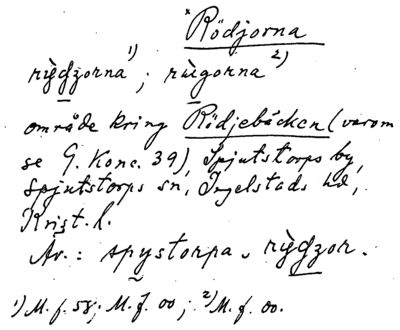 × Rödjorna
rìgdzorna¹⁾; rùgorna²⁾
område kring Rödjebäcken (varom
se G. Konc. 39), Spjutstorps by,
Spjutstorps sn, Ingelstads hd,
Krist. l.
Av.: spystorpa
¹⁾M. f. 58; M. f. 00; ²⁾M. f. 00.